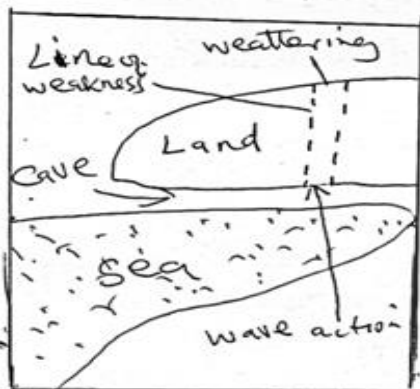 Line of
weakness
weattering
Land
Cave
Sea
wave action